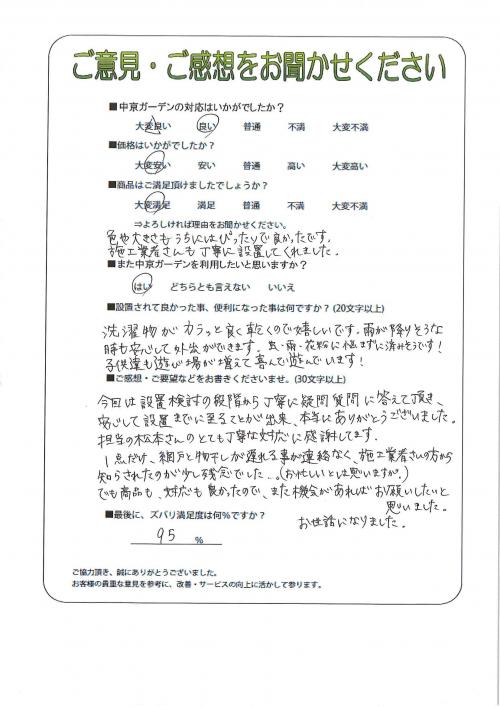 ご意見・ご感想をお聞かせください
■中京ガーデンの対応はいかがでしたか？
大変良い 良い 普通 不満 大変不満
■価格はいかがでしたか？
大変安い 安い 普通 高い 大変高い
■商品はご満足頂けましたでしょうか？
大変満足 満足 普通 不満 大変不満
⇒よろしければ理由をお聞かせください。
色や大きさもうちにはぴったりで良かったです。
施工業者さんも丁寧に設置してくれました。
■また中京ガーデンを利用したいと思いますか？
はい どちらとも言えない いいえ
■設置されて良かった事、便利になった事は何ですか？(20文字以上)
洗濯物がカラッと良く乾くので嬉しいです。雨が降りそうな
時も安心して外出ができます。虫・雨・花粉に悩まずに済みそうです！
子供達も遊び場が増えて喜んで遊んでいます！
■ご感想・ご要望などをお書きくださいませ。(30文字以上)
今回は設置検討の段階から丁寧に疑問質問に答えて頂き、
安心して設置までに至ることが出来、本当にありがとうございました。
担当の松本さんのとても丁寧な対応に感謝してます。
1点だけ、網戸と物干しが遅れる事が連絡なく、施工業者さんの方から
知らされたのが少し残念でした…。(お忙しいとは思いますが。)
でも商品も、対応も良かったので、また機会があればお願いしたいと
思いました。
お世話になりました。
■最後に、ズバリ満足度は何％ですか？
95 %
ご協力頂き、誠にありがとうございました。
お客様の貴重な意見を参考に、改善・サービスの向上に活かして参ります。